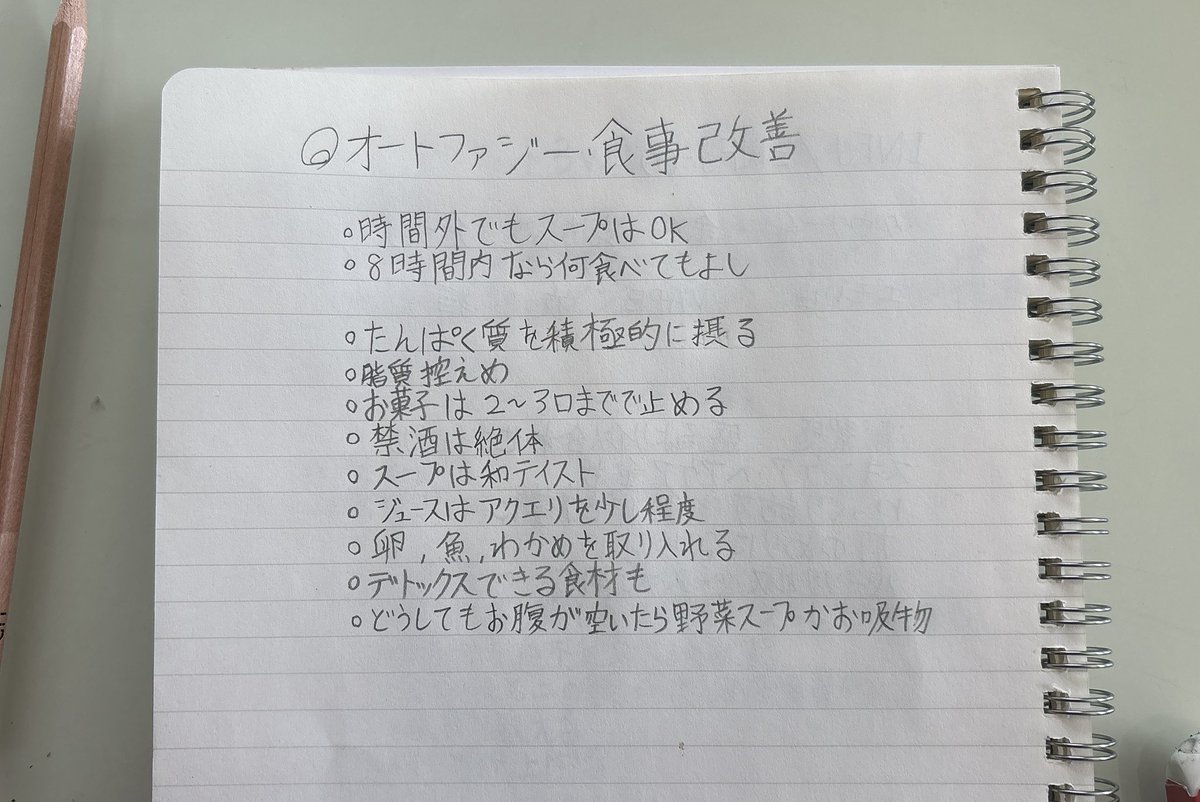 ◎オートファジー・食事改善
○時間外でもスープはOK
○8時間内なら何食べてもよし
○たんぱく質を積極的に摂る
○脂質控えめ
○お菓子は2〜3口までで止める
○禁酒は絶体
○スープは和テイスト
○ジュースはアクエリを少し程度
○卵,魚,わかめを取り入れる
○デトックスできる食材も
○どうしてもお腹が空いたら野菜スープかお吸物